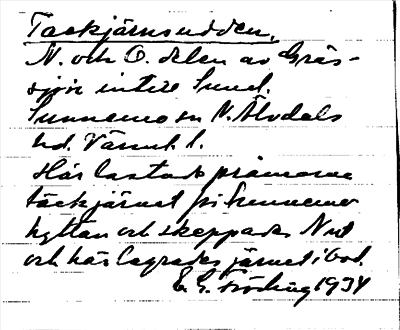 Tackjärnsudden.
N. och O. delen av Gräs-
sjön intill Sund.
Sunnemo sn N. Älvdals
hd. Värml l.
Här lastade pråmarna
tackjärnet från Sunnemo
hyttan och skeppades N ut
och här lagrades järnet i bod.
E. G. Fröding 1934